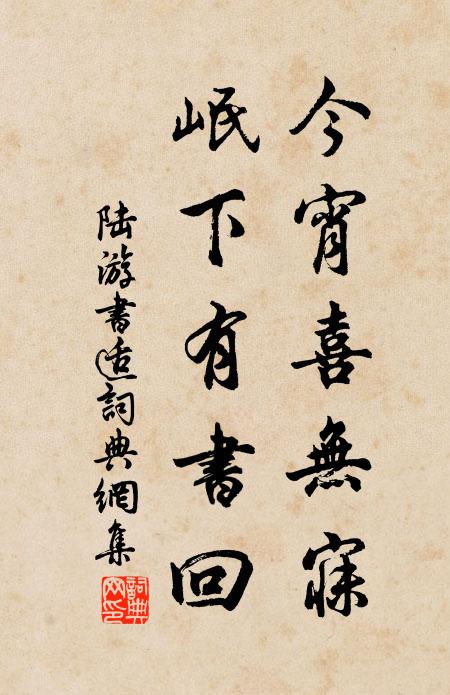 今宵喜無寐
岷下有書回
陸游書适詞典網集
詞典網印